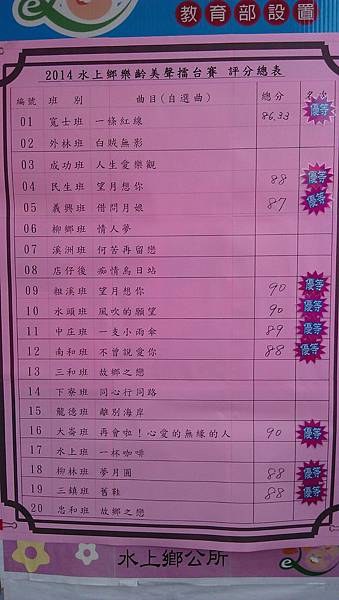 教育部設置
2014水上鄉樂齡美聲擂台賽 評分總表
編號 班別 曲目(自選曲) 總分 名次
01 寬士班 一條紅線 86.33 優等
02 外林班 白賊無影
03 成功班 人生愛樂觀
04 民生班 望月想你 88 優等
05 義興班 借問月娘 87 優等
06 柳鄉班 情人夢
07 溪洲班 何苦再留戀
08 店仔後 痴情烏日站
09 粗溪班 望月想你 90 優等
10 水頭班 風吹的願望 90 優等
11 中庄班 一支小雨傘 89 優等
12 南和班 不曾說愛你 88 優等
13 三和班 故鄉之戀
14 下寮班 同心行同路
15 龍德班 離別海岸
16 大崙班 再會啦!心愛的無緣的人 90 優等
17 水上班 一杯咖啡
18 柳林班 夢月圓 88 優等
19 三鎮班 舊鞋 88 優等
20 忠和班 故鄉之戀
水上鄉公所